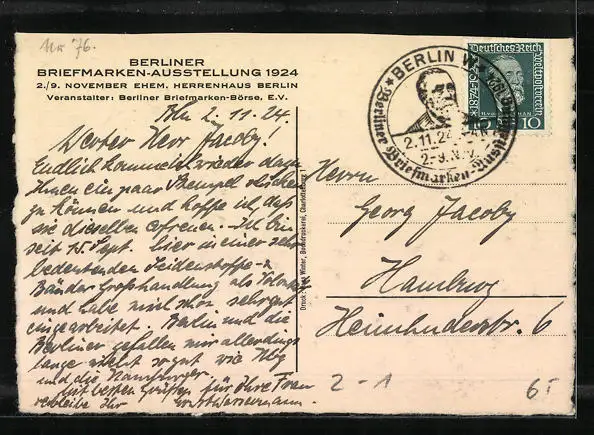 No 76.
BERLINER
BRIEFMARKEN-AUSSTELLUNG 1924
2./9. NOVEMBER EHEM. HERRENHAUS BERLIN
Veranstalter: Berliner Briefmarken-Börse, E.V.
Bln 2.11.24.
Werter Herr Jacoby!
Endlich komme ich wieder dazu
Ihnen ein paar Stempel
zu können und hoffe ich daß
sie dieselben erfreuen. Ich bin
seit 15. Sept. hier in einer sehr
bedeutenden Seidenstoffe- &
Bänder Großhandlung als
und habe mich schon sehr gut
eingearbeitet. Berlin und die
Berliner gefallen mir allerdings
lange nicht so gut wie Hbg
und die Hamburger.
Mit besten Grüßen für Ihre Frau
verbleibe Ihr
Druck: Winter, Buchdruckerei, Charlottenburg 1
BERLIN W
2.11.24
2.-9. NOV.
Berliner Briefmarken-Ausstellung
Deutsches Reich
Weltpostverein
1874-1924
10 10
Herrn
Georg Jacoby
Hamburg
Heimhuderstr. 6
2-1
65